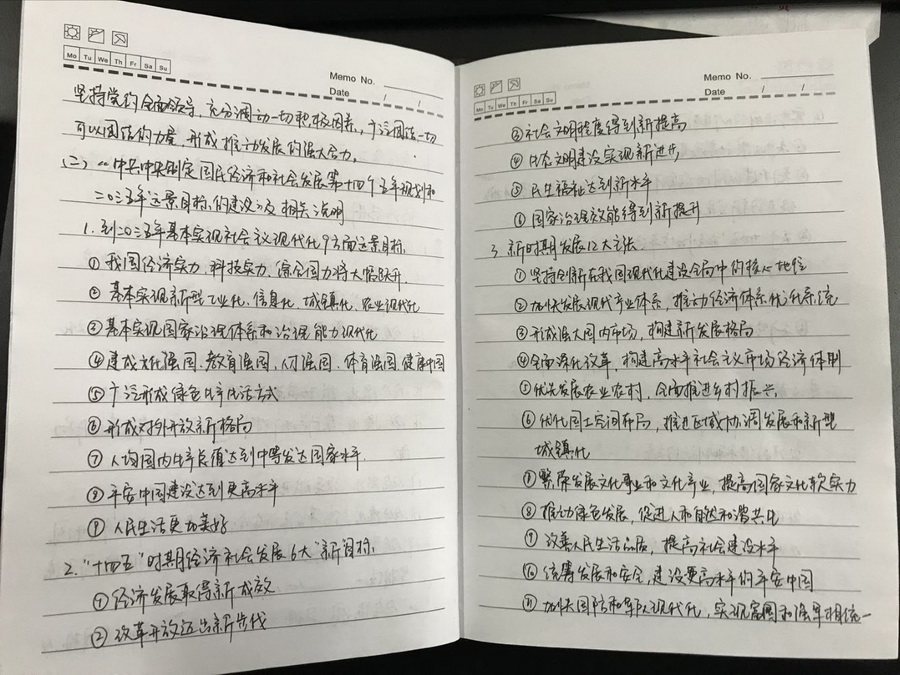 Mo Tu We Th Fr Sa Su
Memo No.
Date / /
坚持党的全面领导,充分调动一切积极因素,广泛团结一切
可以团结的力量,形成推动发展的强大合力。
(二)《中共中央制定国民经济和社会发展第十四个五年规划和
二〇三五年远景目标的建议》及相关说明
1. 到二〇三五年基本实现社会主义现代化9方面远景目标
① 我国经济实力,科技实力,综合国力将大幅跃升
② 基本实现新型工业化、信息化、城镇化、农业现代化
③ 基本实现国家治理体系和治理能力现代化
④ 建成文化强国、教育强国、人才强国、体育强国、健康中国
⑤ 广泛形成绿色生产生活方式
⑥ 形成对外开放新格局
⑦ 人均国内生产总值达到中等发达国家水平
⑧ 平安中国建设达到更高水平
⑨ 人民生活更加美好
2. “十四五”时期经济社会发展6大“新”目标
① 经济发展取得新成效
② 改革开放迈出新步伐
Mo Tu We Th Fr Sa Su
Memo No.
Date / /
③ 社会文明程度得到新提高
④ 生态文明建设实现新进步
⑤ 民生福祉达到新水平
⑥ 国家治理效能得到新提升
3. 新时期发展12大方法
① 坚持创新在我国现代化建设全局中的核心地位
② 加快发展现代产业体系,推动经济体系优化升级
③ 形成强大国内市场,构建新发展格局
④ 全面深化改革,构建高水平社会主义市场经济体制
⑤ 优先发展农业农村,全面推进乡村振兴
⑥ 优化国土空间布局,推进区域协调发展和新型
城镇化
⑦ 繁荣发展文化事业和文化产业,提高国家文化软实力
⑧ 推动绿色发展,促进人和自然和谐共生
⑨ 改善人民生活品质,提高社会建设水平
⑩ 统筹发展和安全,建设更高水平的平安中国
⑪ 加快国防和军队现代化,实现富国和强军相统一